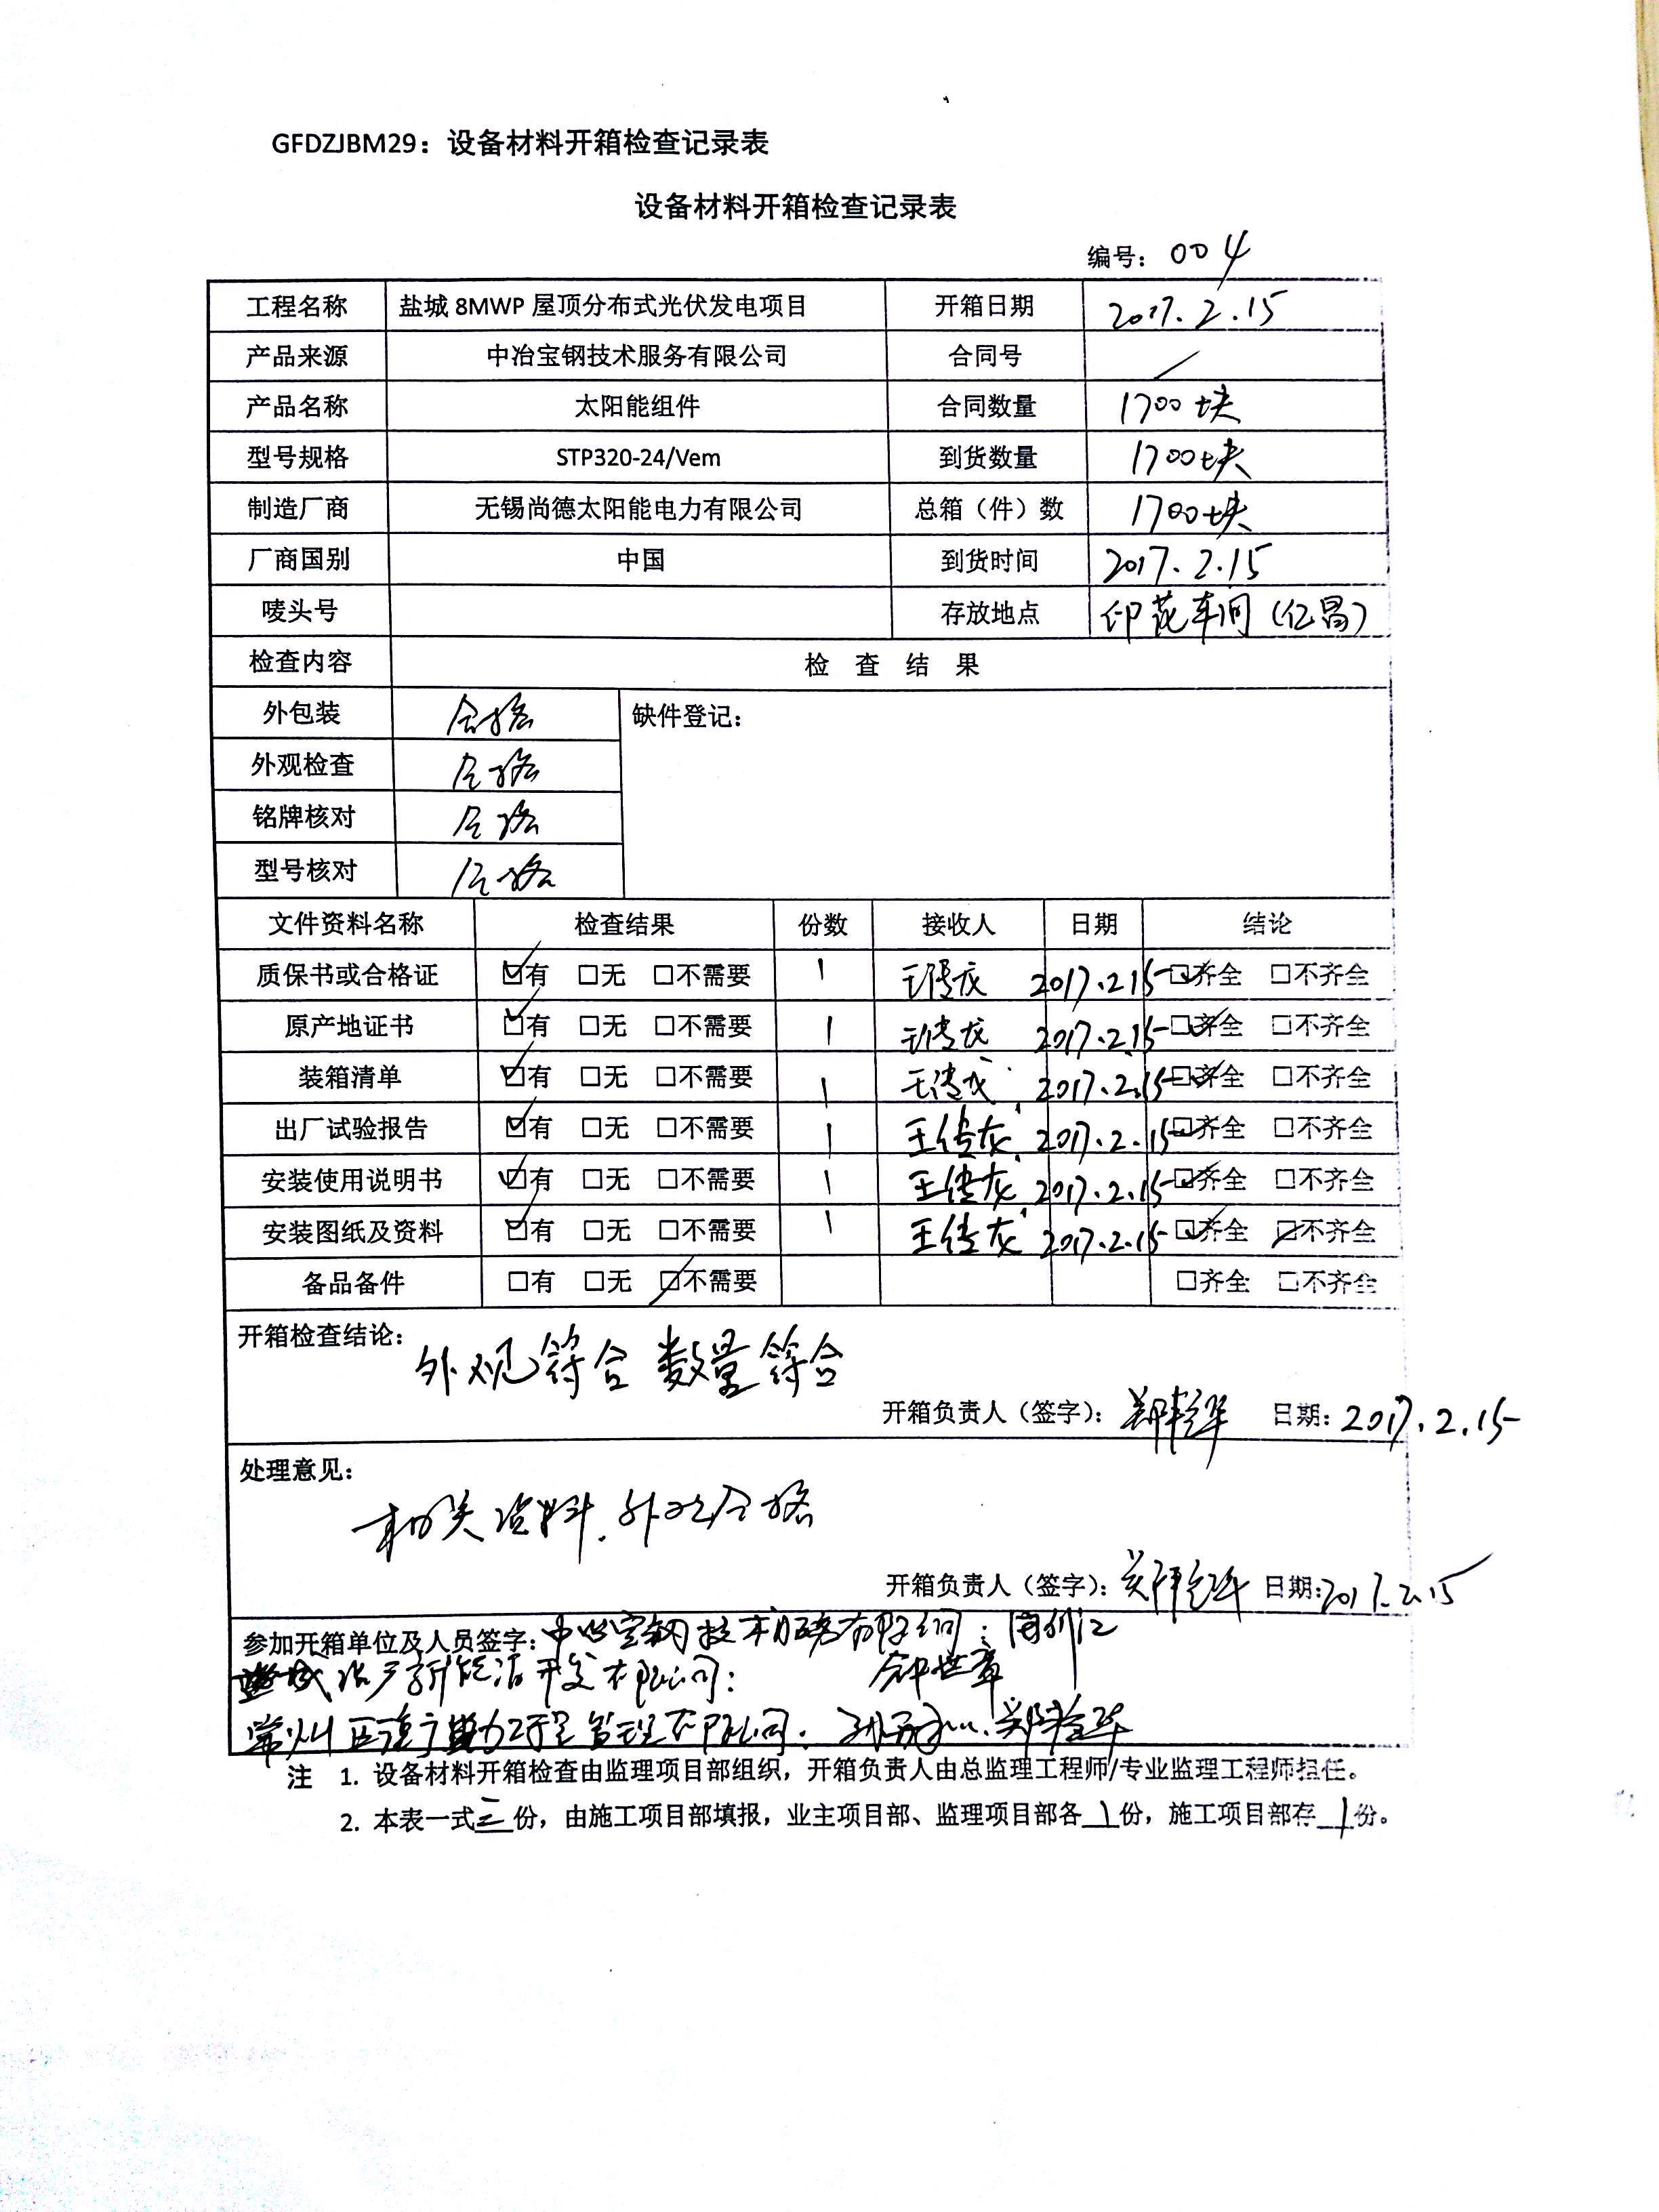 GFDZJBM29：设备材料开箱检查记录表
设备材料开箱检查记录表
编号：004
工程名称 盐城 8MWP 屋顶分布式光伏发电项目 开箱日期 2017.2.15
产品来源 中冶宝钢技术服务有限公司 合同号 /
产品名称 太阳能组件 合同数量 1700块
型号规格 STP320-24/Vem 到货数量 1700块
制造厂商 无锡尚德太阳能电力有限公司 总箱（件）数 1700块
厂商国别 中国 到货时间 2017.2.15
唛头号 存放地点 印花车间(亿昌)
检查内容 检 查 结 果
外包装 合格 缺件登记：
外观检查 合格
铭牌核对 合格
型号核对 合格
文件资料名称 检查结果 份数 接收人 日期 结论
质保书或合格证 ☑有 □无 □不需要 1 王传龙 2017.2.15 ☑齐全 □不齐全
原产地证书 ☑有 □无 □不需要 1 王传龙 2017.2.15 ☑齐全 □不齐全
装箱清单 ☑有 □无 □不需要 1 王传龙 2017.2.15 ☑齐全 □不齐全
出厂试验报告 ☑有 □无 □不需要 1 王传龙 2017.2.15 ☑齐全 □不齐全
安装使用说明书 ☑有 □无 □不需要 1 王传龙 2017.2.15 ☑齐全 □不齐全
安装图纸及资料 ☑有 □无 □不需要 1 王传龙 2017.2.15 ☑齐全 ☑不齐全
备品备件 □有 □无 ☑不需要 □齐全 □不齐全
开箱检查结论：
外观符合 数量符合
开箱负责人（签字）： 日期：2017.2.15
处理意见：
相关资料、外观合格
开箱负责人（签字）： 日期：2017.2.15
参加开箱单位及人员签字：中冶宝钢技术服务有限公司：
新能源开发有限公司：
常州 工程管理有限公司：
注 1. 设备材料开箱检查由监理项目部组织，开箱负责人由总监理工程师/专业监理工程师担任。
2. 本表一式三份，由施工项目部填报，业主项目部、监理项目部各1份，施工项目部存1份。